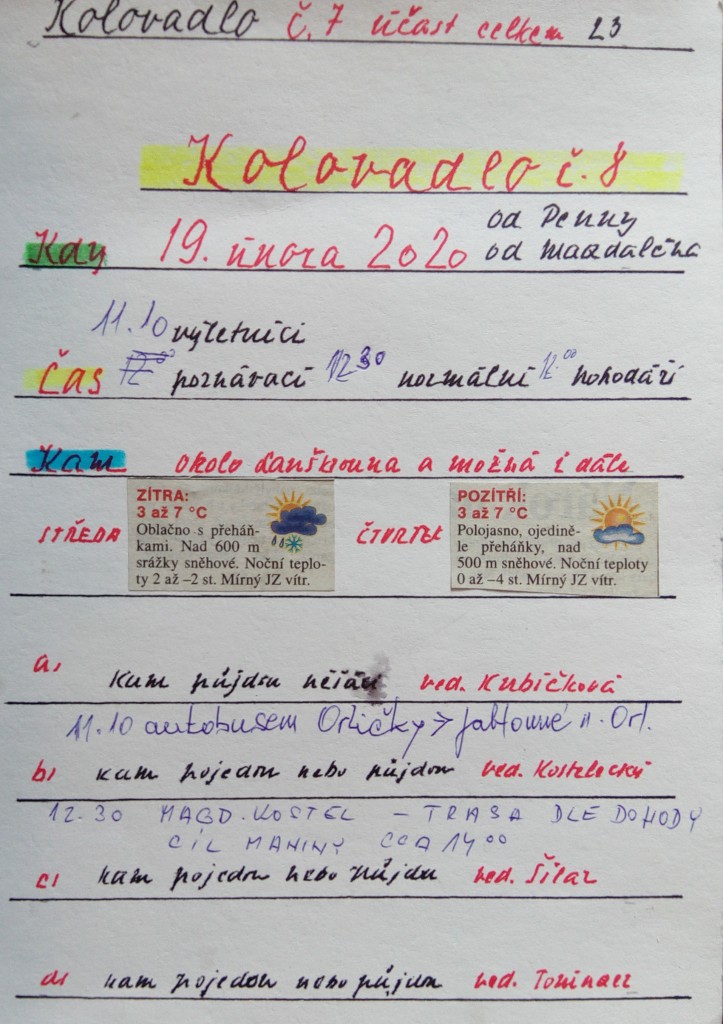 Kolovadlo č. 7 účast celkem 23
Kolovadlo č. 8
Kdy 19. února 2020 od Penny
od Magdaléna
11.10 výletníci
Čas 12⁰⁰ poznávací 12³⁰ normální 12.⁰⁰ pohodáři
Kam okolo Lanškrouna a možná i dále
STŘEDA
ZÍTRA:
3 až 7 °C
Oblačno s přeháň-
kami. Nad 600 m
srážky sněhové. Noční teplo-
ty 2 až –2 st. Mírný JZ vítr.
ČTVRTEK
POZÍTŘÍ:
3 až 7 °C
Polojasno, ojedině-
le přeháňky, nad
500 m sněhové. Noční teploty
0 až –4 st. Mírný JZ vítr.
a, kam půjdou pěšáci ved. Kubíčková
11.10 autobusem Orličky > Jablonné n. Orl.
b, kam pojedou nebo půjdou ved. Kostelecký
12.30 MAGD. KOSTEL – TRASA DLE DOHODY
CÍL MANINY CCA 14⁰⁰
c, kam pojedou nebo půjdu ved. Šilar
d, kam pojedou nebo půjdou ved.